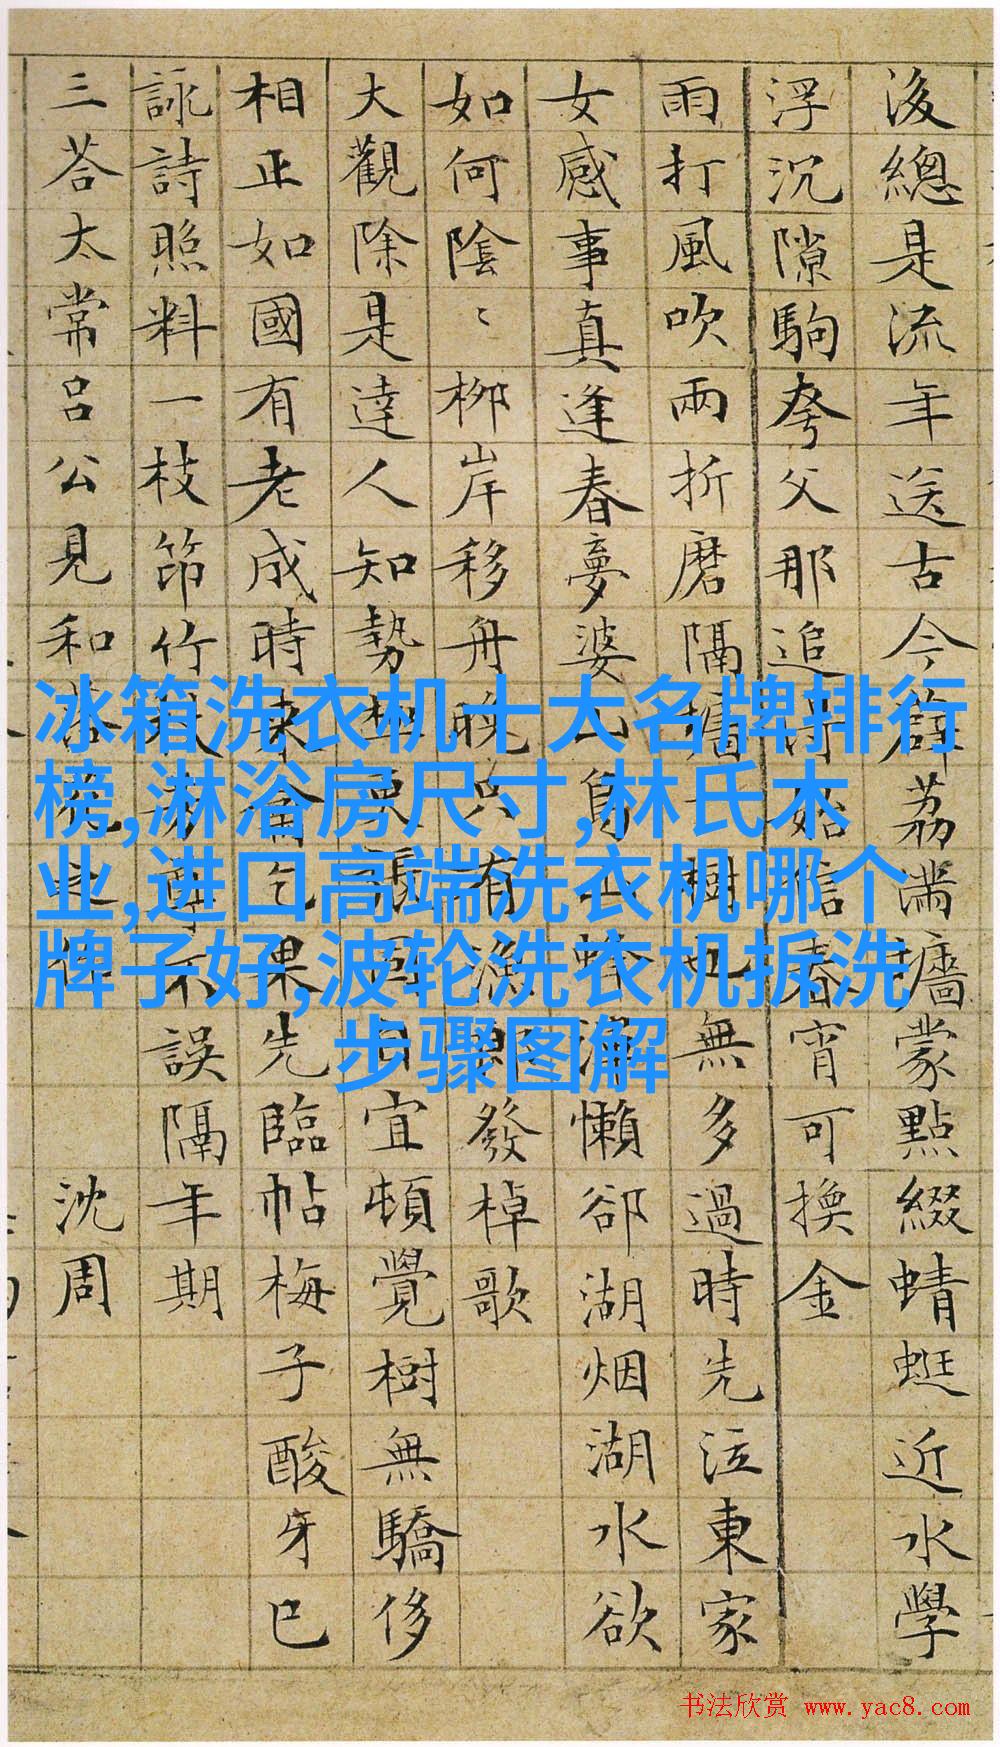 後總是流年送古今薜荔滿牆蒙點綴蜻蜓近水學
浮沉隙駒夸父那追得始信春宵可換金
雨打風吹兩折磨隔墻一樹也無多過時先泣東家
女感事真逢春夢婆身蜂懶卻湖烟湖水欲
如何陰〻柳岸移舟晚只有漁郎發棹歌
大觀除是達人知勢固宜頓覺樹無驕侈
相正如國有老成時果先臨帖梅子酸牙已
詠詩照料一枝笻竹不誤隔年期
三荅太常呂公見和
沈周
冰箱洗衣机十大名牌排行
榜,淋浴房尺寸,林氏木
业,进口高端洗衣机哪个
牌子好,波轮洗衣机拆洗
步骤图解
书法欣赏 www.yac8.com